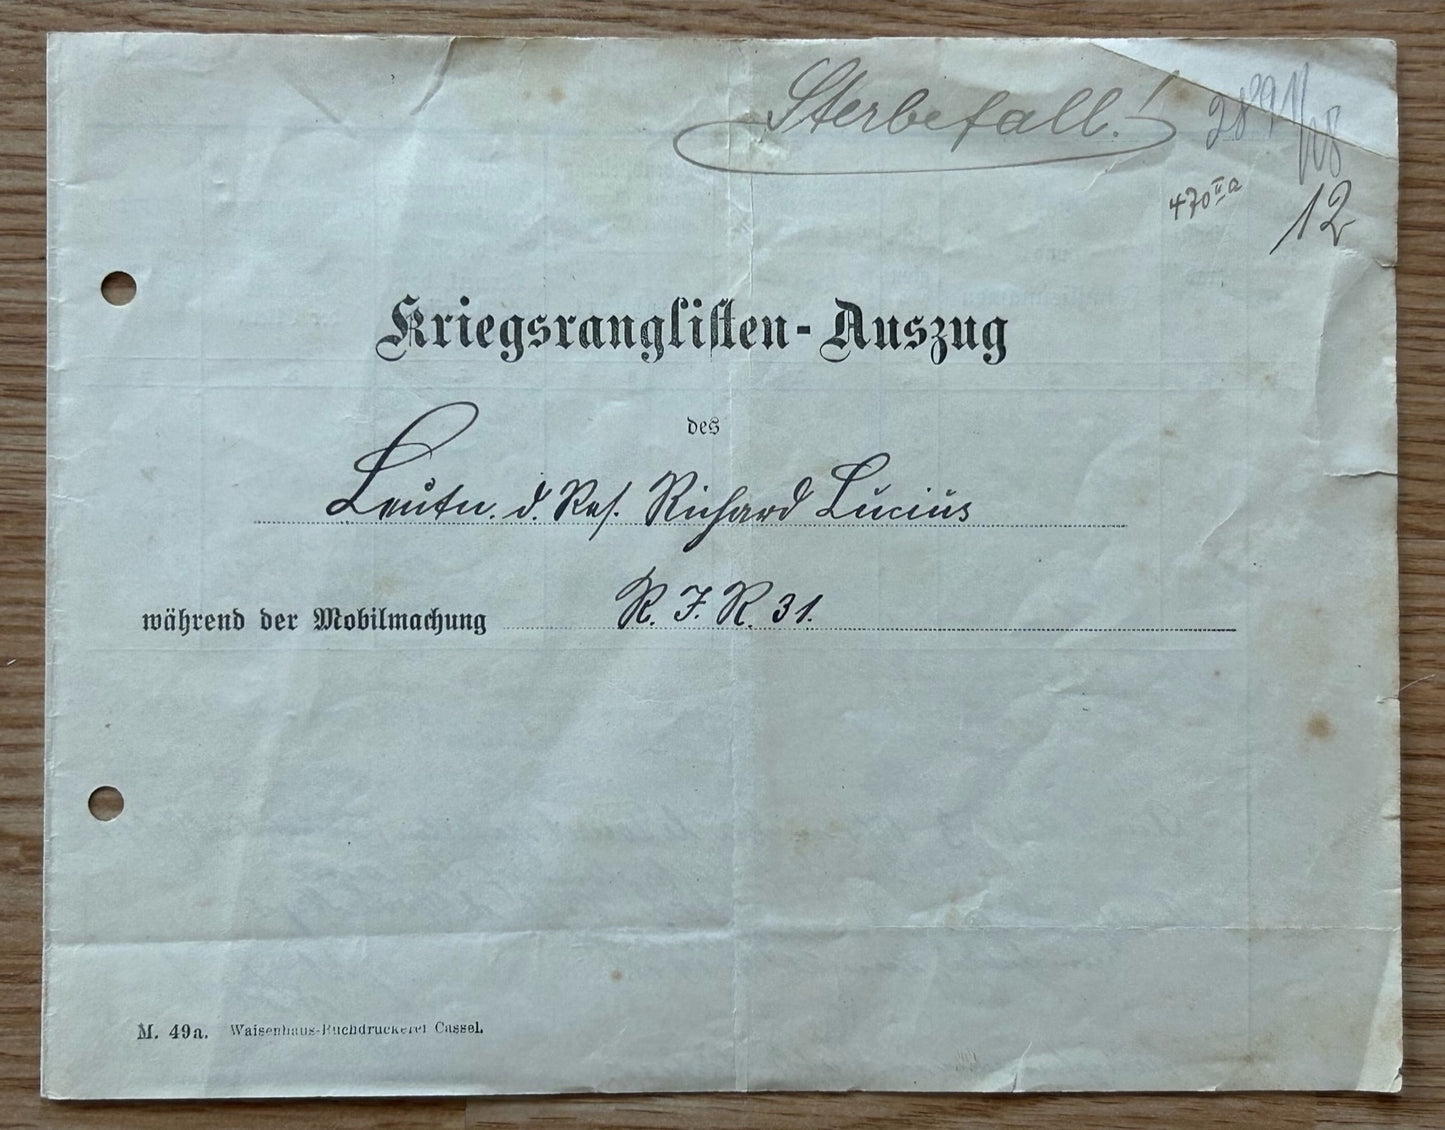 Sterbefall!
470 II a
12
Kriegsranglisten-Auszug
des
Leutn. d. Res. Richard Lucius
während der Mobilmachung R. I. R. 31.
M. 49a. Waisenhaus-Buchdruckerei Cassel.